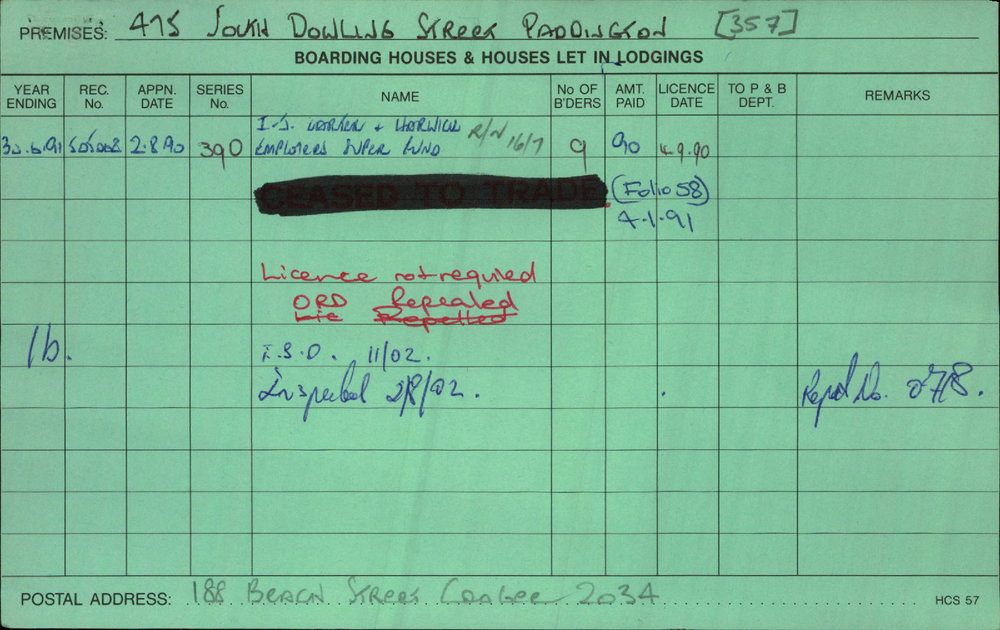 PREMISES: 475 SOUTH DOWLING STREET PADDINGTON [357]
BOARDING HOUSES & HOUSES LET IN LODGINGS
YEAR ENDING REC. No. APPN. DATE SERIES No. NAME No OF B'DERS AMT. PAID LICENCE DATE TO P & B DEPT. REMARKS
I.J. R/N
30.6.91 2.8.90 390 EMPLOYERS SUPER FUND 16/7 9 90 4.9.90
CEASED TO TRADE (Folio 58)
4.1.91
Licence not required
ORD Repealed
Lic Repelled
1b. I.S.O. 11/02.
Inspected 2/8/02. Report No. 0718.
POSTAL ADDRESS: 188 BEACH STREET COOGEE 2034 HCS 57